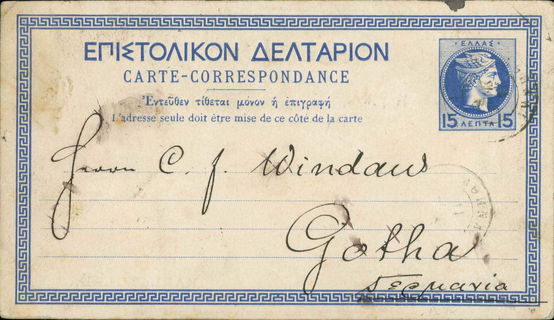 ΕΠΙΣΤΟΛΙΚΟΝ ΔΕΛΤΑΡΙΟΝ
CARTE-CORRESPONDANCE
Ἐντεῦθεν τίθεται μόνον ἡ ἐπιγραφή
L'adresse seule doit être mise de ce côté de la carte
ΕΛΛΑΣ
15 ΛΕΠΤΑ 15
Herrn C. F. Windaus
Gotha
Γερμανία